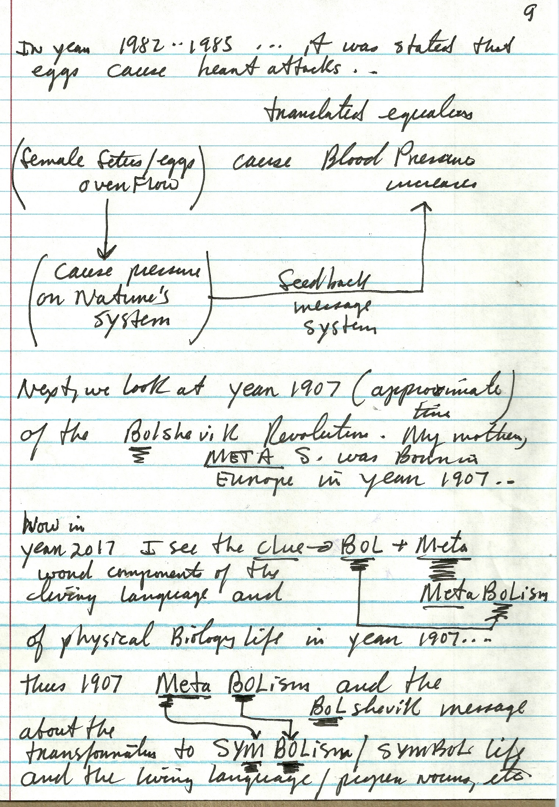 9
In year 1982..1985 ... it was stated that
eggs cause heart attacks...
translated equals
(female fetus/eggs cause Blood Pressure
overflow) increases
(Cause pressure
on Nature's feedback
system) message
system
Next, we look at year 1907 (approximate)
time
of the Bolshevik Revolution. My mother,
META S. was Born in
Europe in year 1907...
Now in
year 2017 I see the clue → BOL + Meta
word components of the
living language and MetaBOLism
of physical Biology life in year 1907....
thus 1907 Meta BOLism and the
BOLshevik message
about the
transformation to SYM BOLism/symBOL life
and the living language/proper nouns, etc